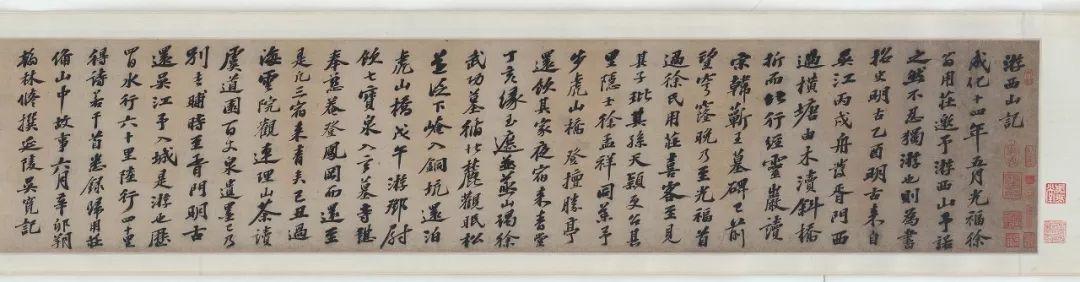 游西山記
成化十四年五月光福徐
君用莊邀予游西山予諾
之然不忍獨游也則為書
招史明古乙酉明古来自
吳江丙戌舟發胥門西
過橫塘由木瀆斜橋
折而北行經靈巖讀
宋韓蘄王墓碑已前
望穹窿晚乃至光福首
過徐氏用莊喜客至見
其子玭其孫天穎又以其
里隱士徐孟祥同 予
步虎山橋登擅勝亭
還飲其家夜宿来青堂
丁亥緣玉遮並蒸山謁徐
武功墓循北麓觀眠松
泛下崦入銅坑還泊
虎山橋戊午游鄧尉
飲七寶泉入 墓寺
奉慕菴登鳳岡而還至
是凡三宿来青矣己丑過
海雲院觀連理山茶讀
虞道園百丈泉遺墨已乃
別去晡時至胥門明古
還吳江予入城是游也歷
四日水行六十里陸行四十里
得詩若干首悉錄歸用莊
備山中故事六月辛卯朔
翰林修撰延陵吳寬記